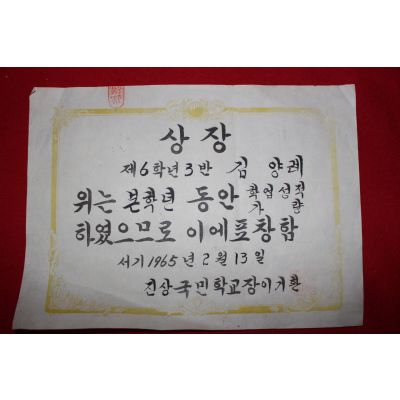 상장
제6학년3반 김양례
위는 본학년 동안 학업성적
가량
하였으므로 이에표창함
서기1965년 2월 13일
진상국민학교장이기환